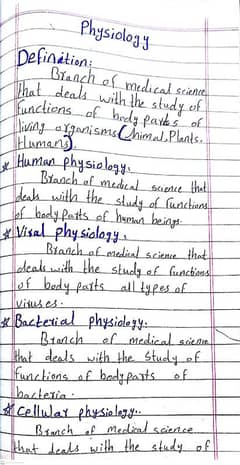 Physiology
Definition:
Branch of medical science
that deals with the study of
functions of body parts of
living organisms (Animal, Plants,
Humans).
* Human physiology.
Branch of medical science that
deals with the study of functions
of body parts of human beings.
* Viral physiology.
Branch of medical science that
deals with the study of functions
of body parts all types of
viruses.
* Bacterial physiology.
Branch of medical science
that deals with the study of
functions of body parts of
bacteria.
* Cellular physiology.
Branch of medical science
that deals with the study of